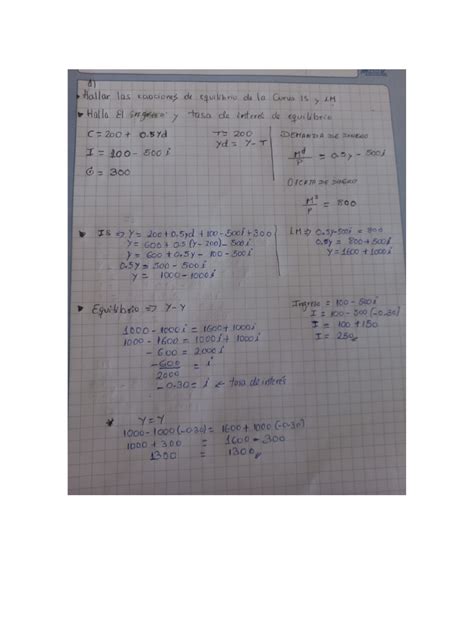 a)
Hallar las ecuaciones de equilibrio de la Curva IS y LM
Halla El ingreso y tasa de interés de equilibrio
C = 200 + 0.5Yd
T = 200
Yd = Y - T
I = 100 - 500i
G = 300
DEMANDA DE DINERO
M^d/P = 0.5y - 500i
OFERTA DE DINERO
M^s/P = 800
IS => Y = 200 + 0.5yd + 100 - 500i + 300
Y = 600 + 0.5(Y-200) - 500i
Y = 600 + 0.5Y - 100 - 500i
0.5Y = 500 - 500i
Y = 1000 - 1000i
LM => 0.5Y - 500i = 800
0.5Y = 800 + 500i
Y = 1600 + 1000i
Equilibrio => Y - Y
1000 - 1000i = 1600 + 1000i
1000 - 1600 = 1000i + 1000i
- 600 = 2000i
-600/2000 = i
- 0.30 = i ← tasa de interés
Ingreso = 100 - 500i
I = 100 - 500(-0.30)
I = 100 + 150
I = 250
* Y = Y
1000 - 1000(-0.30) = 1600 + 1000(-0.30)
1000 + 300 = 1600 - 300
1300 = 1300